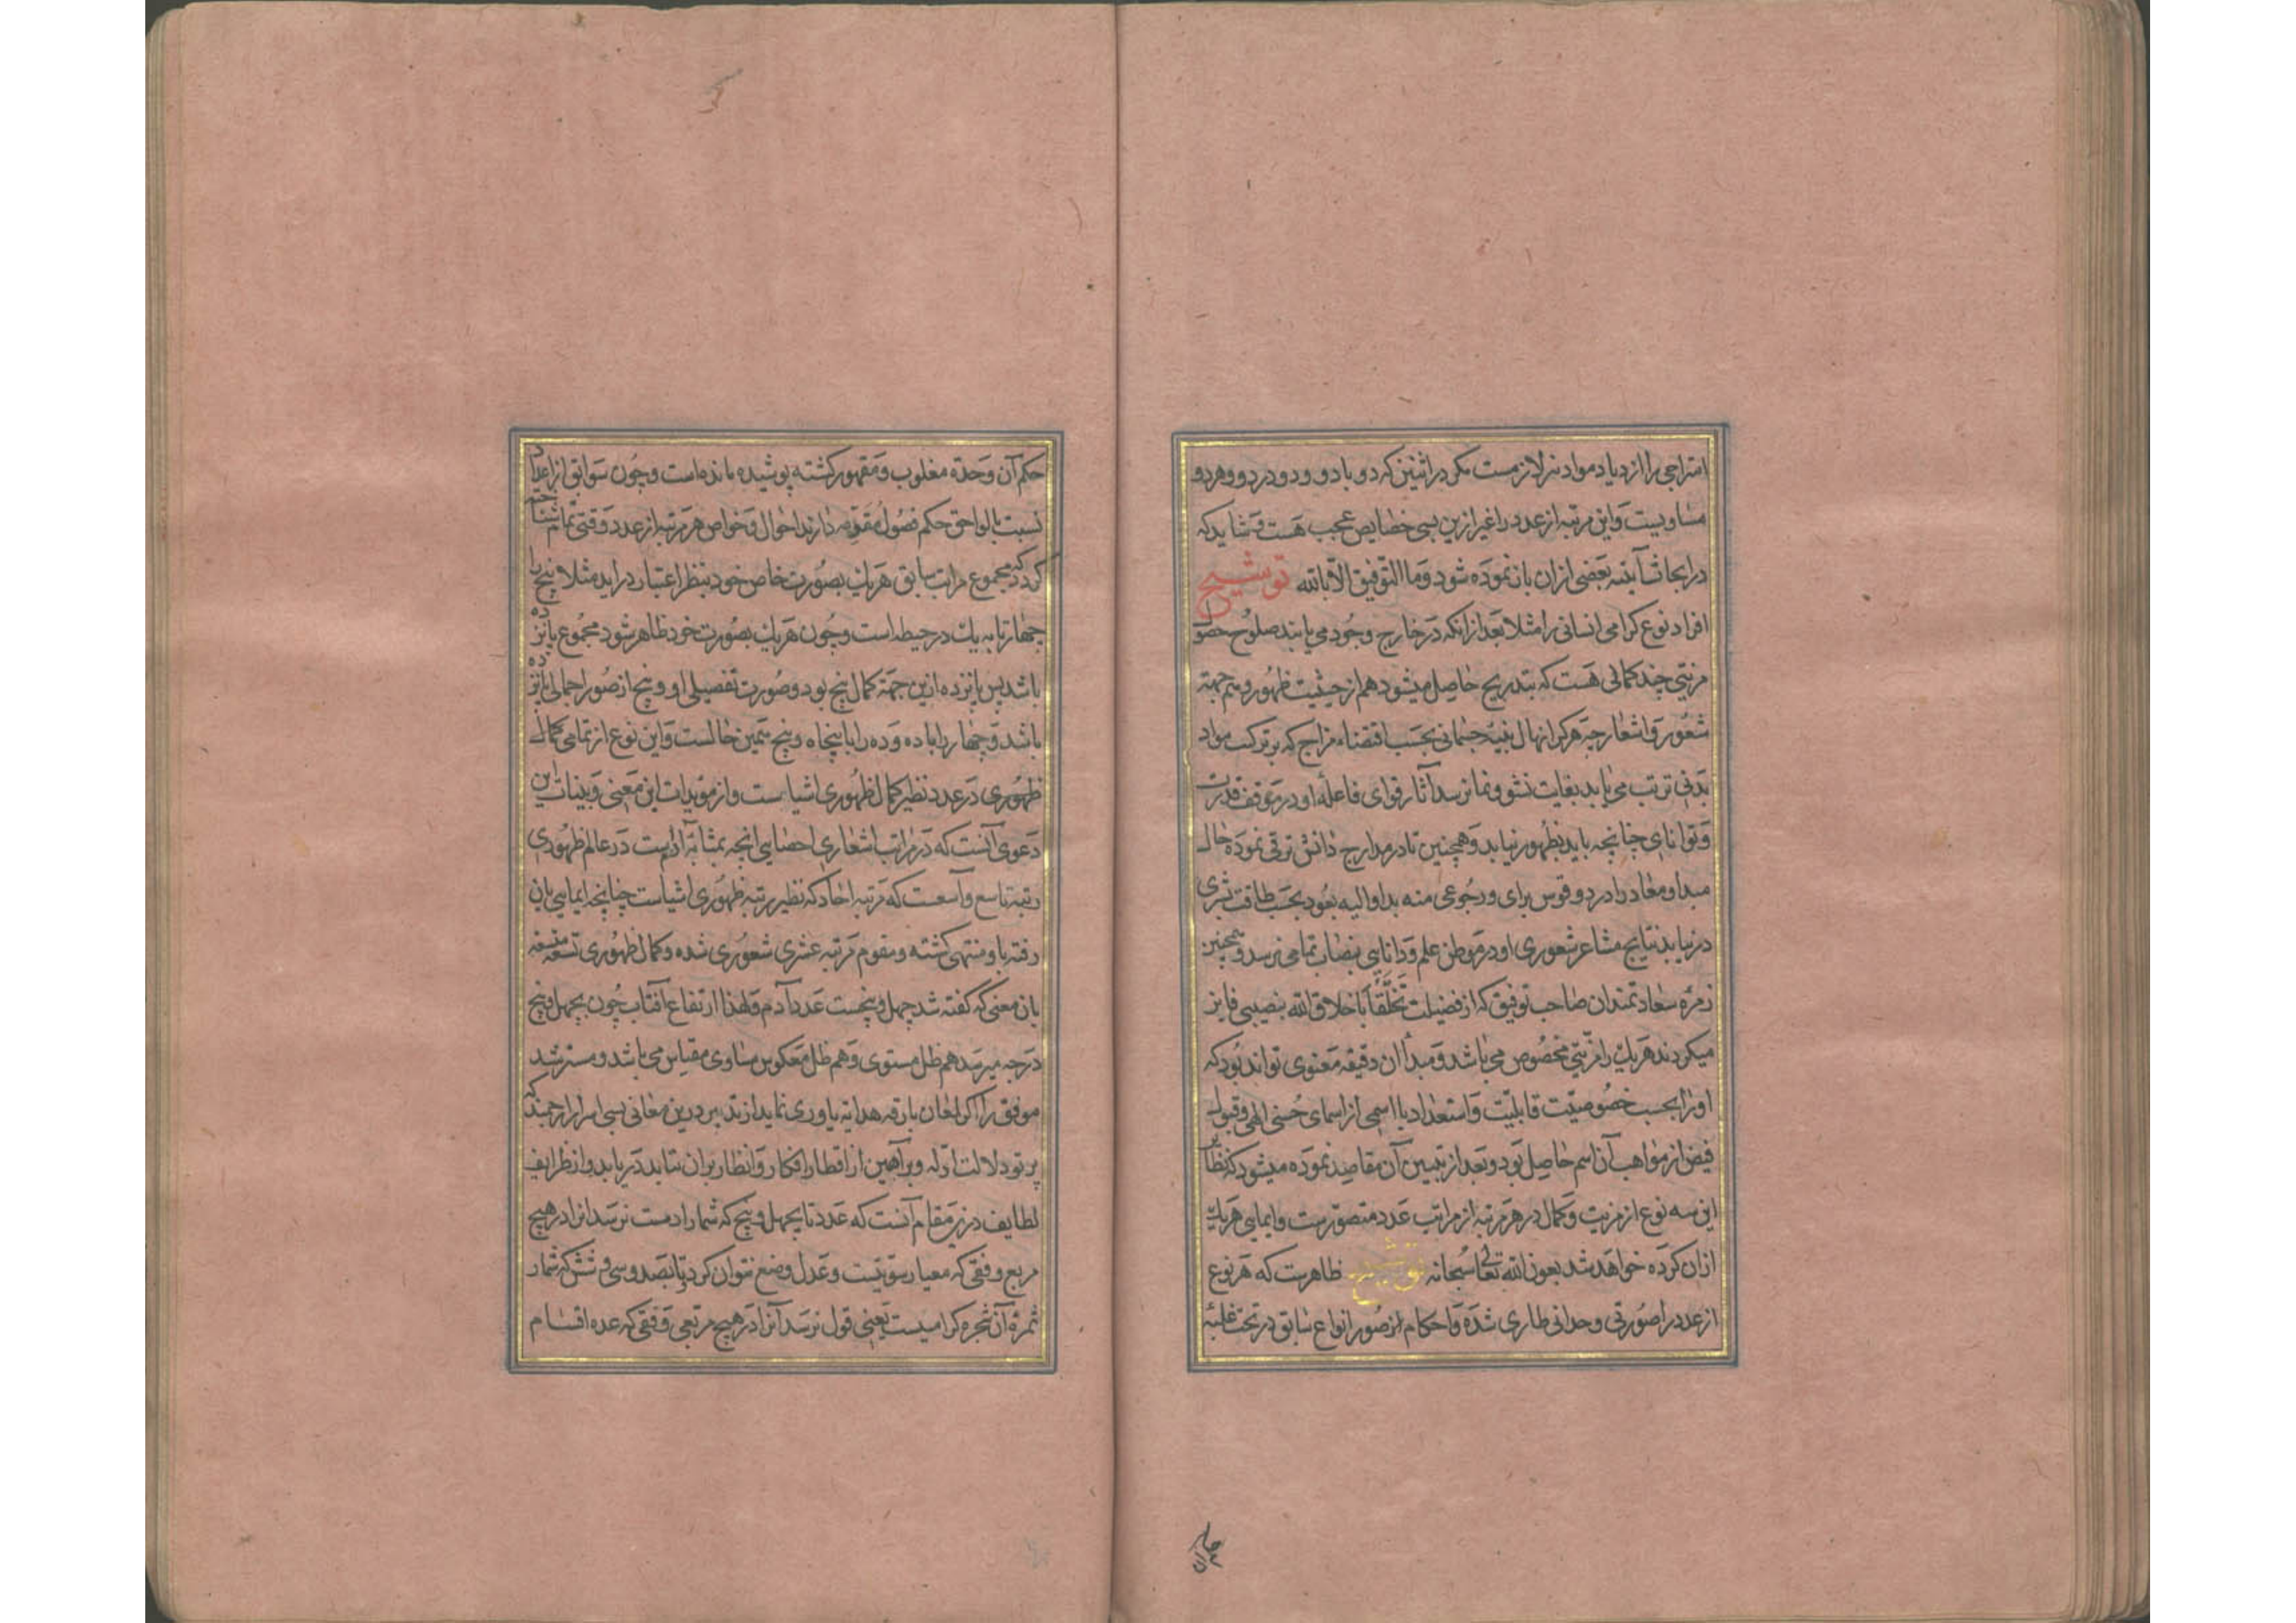 امتزاجی را ازدیاد مواد نیز لازمست مکر در اثنین که دو با دو و دو در دو و هر دو
مساویست و این مرتبه از عدد را غیر ازین بسی خصایص عجب هست و شاید که
در ابحاث آینه بعضی ازان باز نموده شود و ما التوفیق الا بالله توشیح
افراد نوع کرامی انسانی را مثلا بعد از انکه در خارج وجود می یابند صلوح حصول
مزیتی چند کمالی هست که بتدریج حاصل میشود هم از حیثیت ظهور و هم جهة
شعور و اشعار چه هرکرا نهال بنیهٔ جسمانی بحسب اقتضاء مزاج که بر ترکب مواد
بدنی ترتب می یابد بغایت نشو و نما نرسد آثار قوای فاعلهٔ او در موقف قدرت
و توانایی چنانچه باید بظهور نیابد و همچنین تا در مدارج دانش ترقی نموده حال
مبدا و معاد را در دو قوس برای و رجوعی منه بدا و الیه یعود بحسب طاقت بشری
در نیابد نتایج مشاعر شعوری او در موطن علم و دانایی بنصاب تمامی نرسد و همچنین
زمرهٔ سعادتمندان صاحب توفیق که از فضیلت تخلقا باخلاق الله بنصیبی فایز
میکردند هریک را مزیتی مخصوص می باشد و مبدأ ان دقیقه معنوی تواند بود که
اورا بحسب خصوصیت قابلیت و استعداد با اسمی از اسمای حسنی الهی و قبول
فیض از مواهب آن اسم حاصل بود و بعد از تبیین آن مقاصد نموده میشود که نظایر
این سه نوع از مزیت و کمال در هر مرتبه از مراتب عدد متصورست و ایمایی بهریک
ازان کرده خواهد شد بعون الله تعالی سبحانه توشیح ظاهرست که هر نوع
از عدد را صورتی وحدانی طاری شده و احکام صور انواع سابق در تحت غلبهٔ
حکم آن وحدة مغلوب و مقهور کشته پوشیده مانده است و چون سوابق از اعداد
نسبت بالواحق حکم فصول مقومه دارند احوال و خواص هر مرتبه از عدد وقتی تمام شناخته
کردد که مجموع مراتب سابق هریک بصورت خاص خود بنظر اعتبار در اید مثلا پنج را
چهار تا به یک در حیطه است و چون هریک بصورت خود ظاهر شود مجموع پانزده
باشد پس پانزده ازین جهة کمال پنج بود و صورت تفصیلی او و پنج از صور اجمالی پانزده
باشد و چهار را با ده و ده را با پنجاه و پنج همین حالست و این نوع از تمامی کمال
ظهوری در عدد نظیر کمال ظهوری اشیاست و از مؤیدات این معنی و بینات این
دعوی آنست که در مراتب اشعاری احصایی انچه بمثابهٔ آدمست در عالم ظهوری
رتبهٔ تاسع و آسعست که مرتبه احاد که نظیر رتبه ظهوری اشیاست چنانچه ایمایی بان
رفته با و منتهی کشته و مقوم مرتبه عشری شعوری شده و کمال ظهوری تسعه
بان معنی که کفته شد چهل و پنجست عدد آدم و لهذا ارتفاع آفتاب چون بچهل و پنج
درجه میرسد هم ظل مستوی و هم ظل معکوس مساوی مقیاس می باشد و مسترشد
موفق را اکر لمعان بارقه هدایه یاوری نماید از تدبر درین معانی بسی اسرار ارجمند که
پرتو دلالت ادله و براهین از اقطار افکار و انظار بران نتابد دریابد و از ظرایف
لطایف درین مقام آنست که عدد تا بچهل و پنج که شمار ادمست نرسد انرا در هیچ
مربع وفقی که معیار سویتست و عدل وضع نتوان کرد و تا بصد و سی و شش که شمار
ثمرهٔ آن شجرهٔ کرامیست یعنی قول نرسد آنرا در هیچ مربعی وفقی که عده اقسام